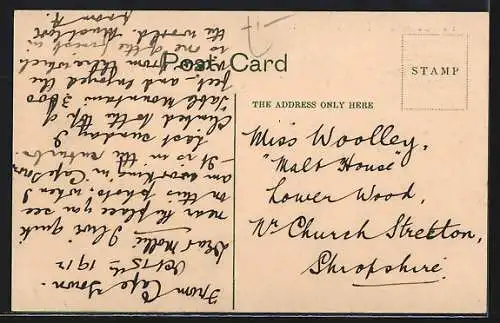 Post Card
STAMP
THE ADDRESS ONLY HERE
Miss Woolley,
"Malt House"
Lower Wood,
Nr Church Stretton,
Shropshire.
From Cape Town.
Oct 15th 1912
Dear Mollie I live quite
near the place you see
on this photo, when I
am working in Cape Town
— It is in the suburbs
Last Sunday I
Climbed to the top of
Table Mountain 3,600
feet — and enjoyed the
from there which
is one of the finest in
the world. Much love
from